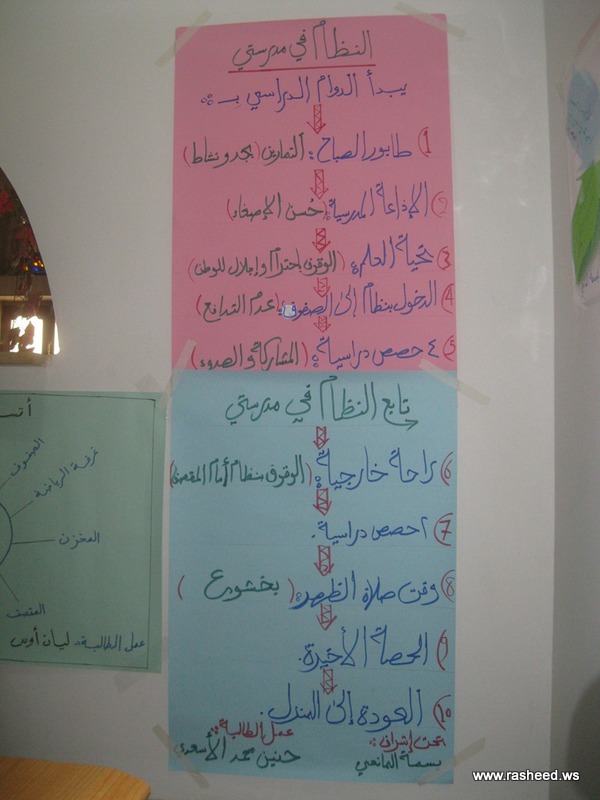 النظام في مدرستي
يبدأ الدوام الدراسي بـ :
1) طابور الصباح: التمارين (بجد ونشاط)
2) الإذاعة المدرسية: (حُسن الإصغاء)
3) تحية العلم: (الوقوف إحترام وإجلال للوطن)
4) الدخول بنظام إلى الصفوف: (عدم التدافع)
5) ٤ حصص دراسية: (المشاركة والهدوء)
تابع النظام في مدرستي
6) راحة خارجية: (الوقوف بنظام أمام المقصف)
7) ٢ حصص دراسية.
8) وقت صلاة الظهر: (بخشوع)
9) الحصة الأخيرة.
10) العودة إلى المنزل.
تحت إشراف: عمل الطالبة:
حنين محمد الأسعدي
بسمة
الصفوف
غرفة الرياضة
المخزن
المقصف
عمل الطالبة: ليان أوس
www.rasheed.ws